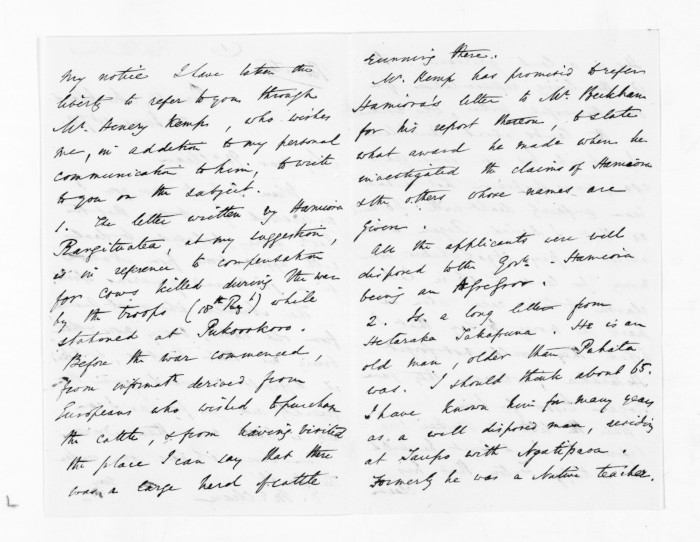 my notice I have taken the
liberty to refer to you through
Mr. Henry Kemp, who wishes
me, in addition to my personal
communication to him, to write
to you on the subject.
1. The letter written by Hamiora
Rangituatea, at my suggestion,
is in reference to compensation
for cows killed during the war
by the troops (18th Regt) while
stationed at Pukorokoro.
Before the war commenced,
from informatn derived from
Europeans who wished to purchase
the cattle, & from having visited
the place I can say that there
was a large herd of cattle
running there.
Mr. Kemp has promised to refer
Hamiora's letter to Mr. Beckham
for his report thereon, to state
what award he made when he
investigated the claims of Hamiora
& the others whose names are
given.
All the applicants were well
disposed to the Govt. - Hamiora
being an
2. Is a long letter from
Hetaraka Takapuna. He is an
old man, older than Pahata
was. I should think about 65.
I have known him for many years
as a well disposed man, residing
at Taupo with Ngatipaoa.
Formerly he was a Native teacher.